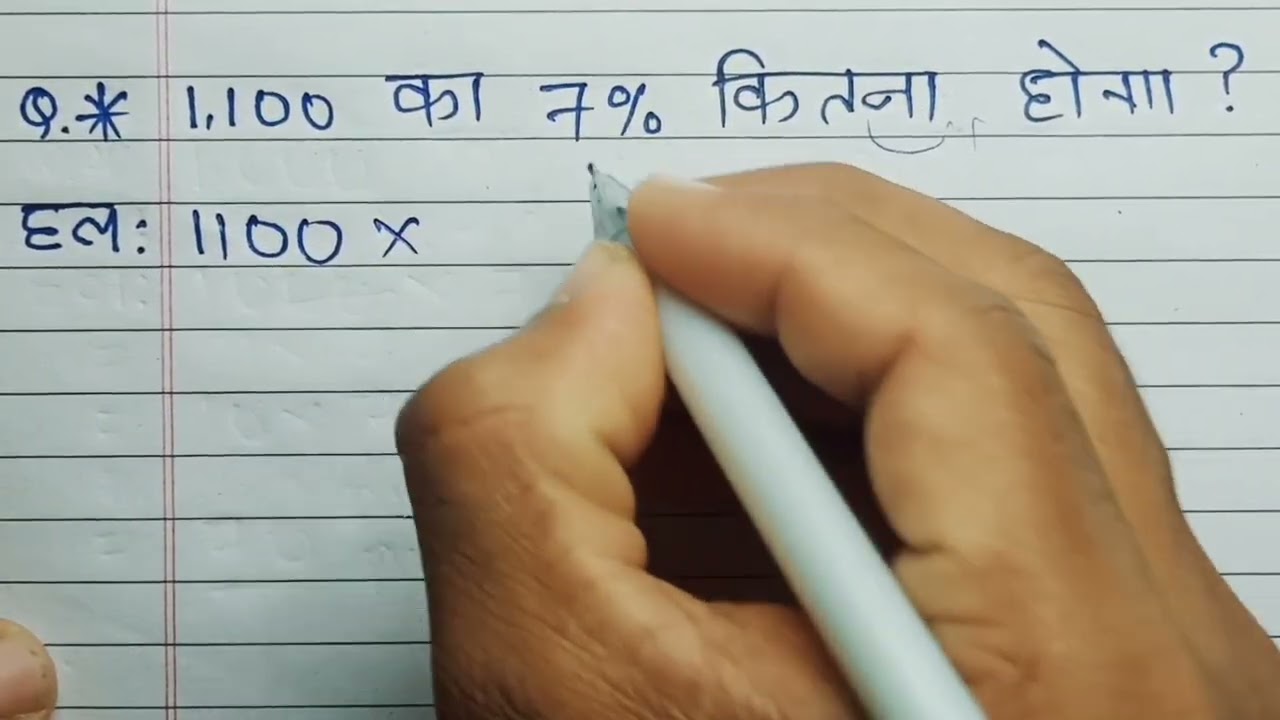 Q.* 1,100 का 7% कितना होगा ?
हल: 1100 ×